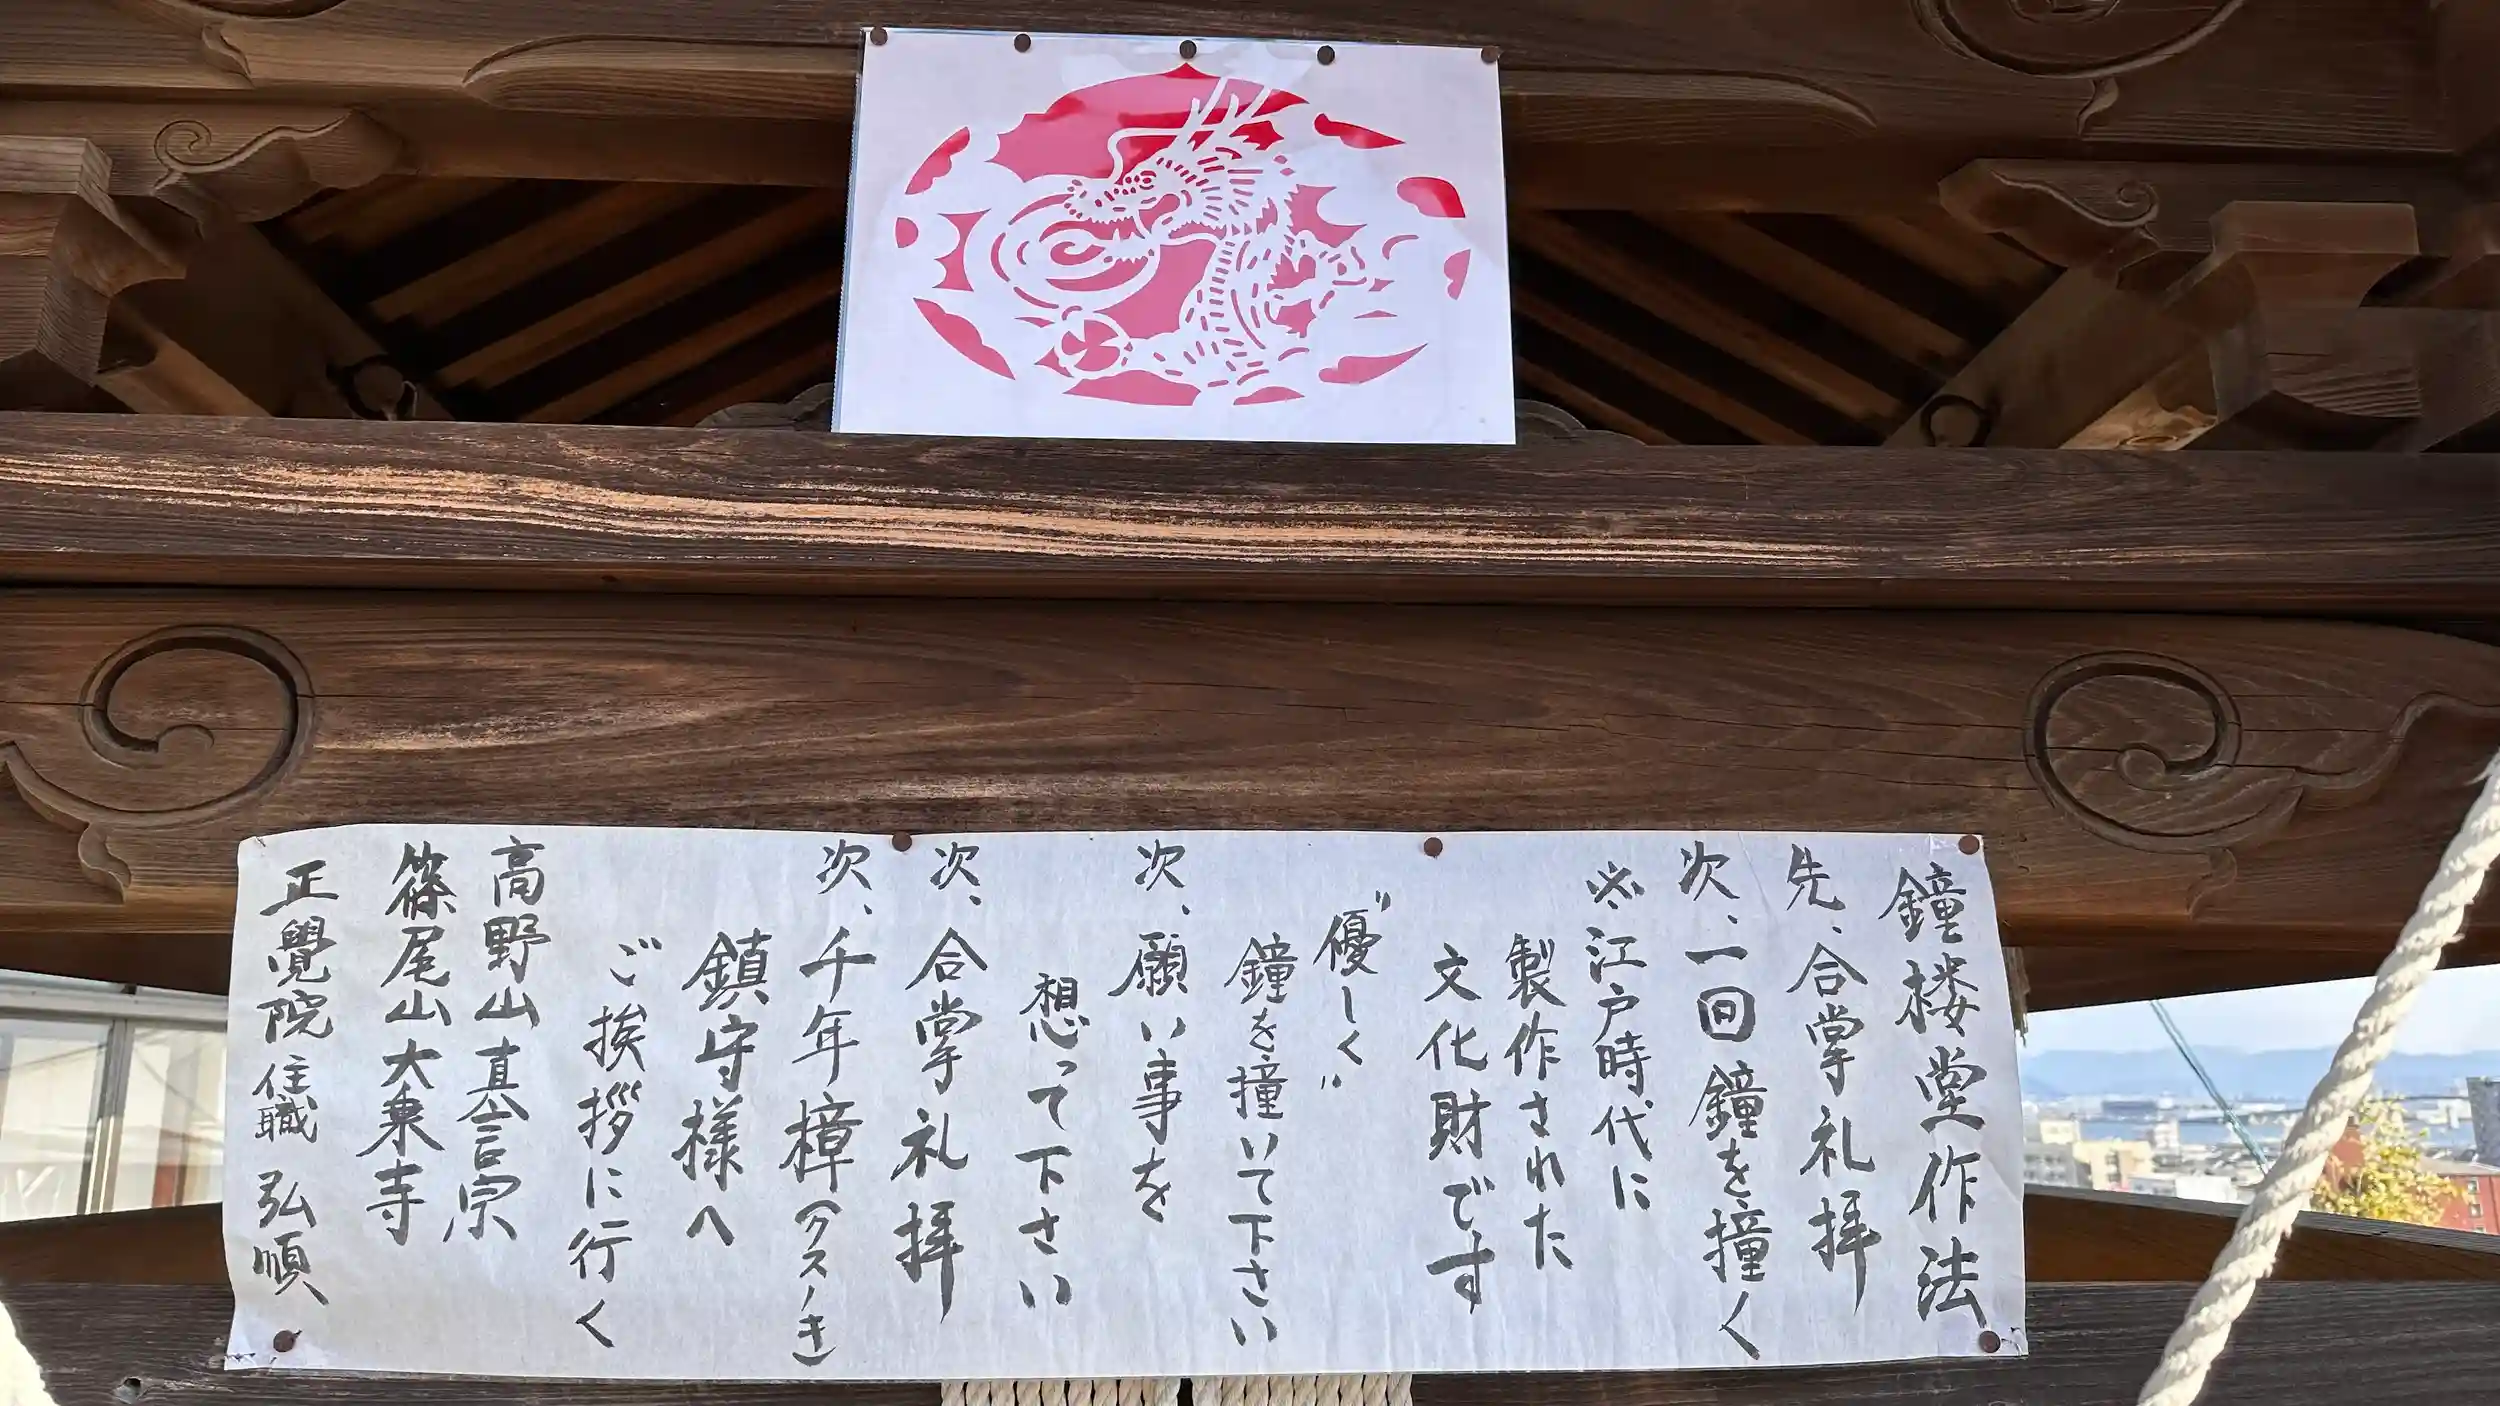 鐘楼堂作法
先、合掌礼拝
次、一回鐘を撞く
※江戸時代に
製作された
文化財です
"優しく"
鐘を撞いて下さい
次、願い事を
想って下さい
次、合掌礼拝
次、千年樟(クスノき)
鎮守様へ
ご挨拶に行く
高野山真言宗
篠尾山大乗寺
正覺院住職 弘順